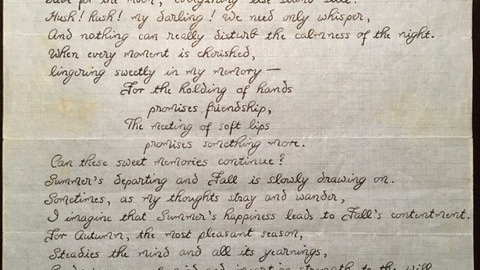 Hush! hush! my darling! We need only whisper,
And nothing can really disturb the calmness of the night.
When every moment is cherished,
lingering sweetly in my memory—
For the holding of hands
promises friendship,
The meeting of soft lips
promises something more.
Can these sweet memories continue?
Summer's departing and Fall is slowly drawing on.
Sometimes, as my thoughts stray and wander,
I imagine that Summer's happiness leads to Fall's contentment.
For Autumn, the most pleasant season,
Steadies the mind and all its yearnings,
strength to the will